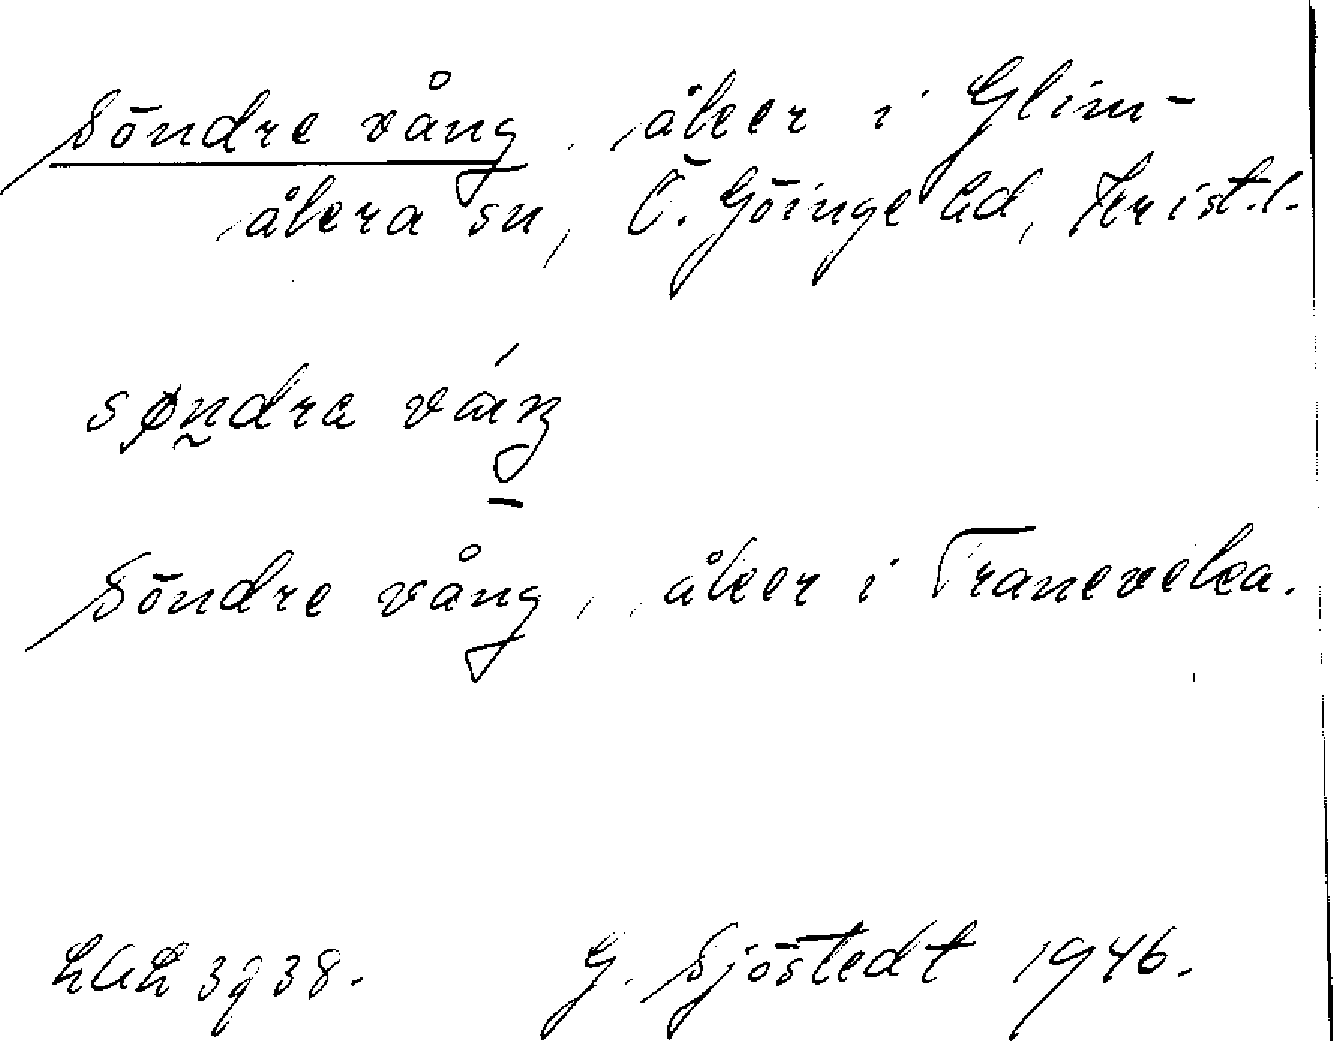 Söndre vång, åker i Glim-
åkra sn, Ö. Göinge hd, Krist. l.
søndra váŋ
Söndre vång, åker i Traneveka.
LAL 3938. G. Sjöstedt 1946.